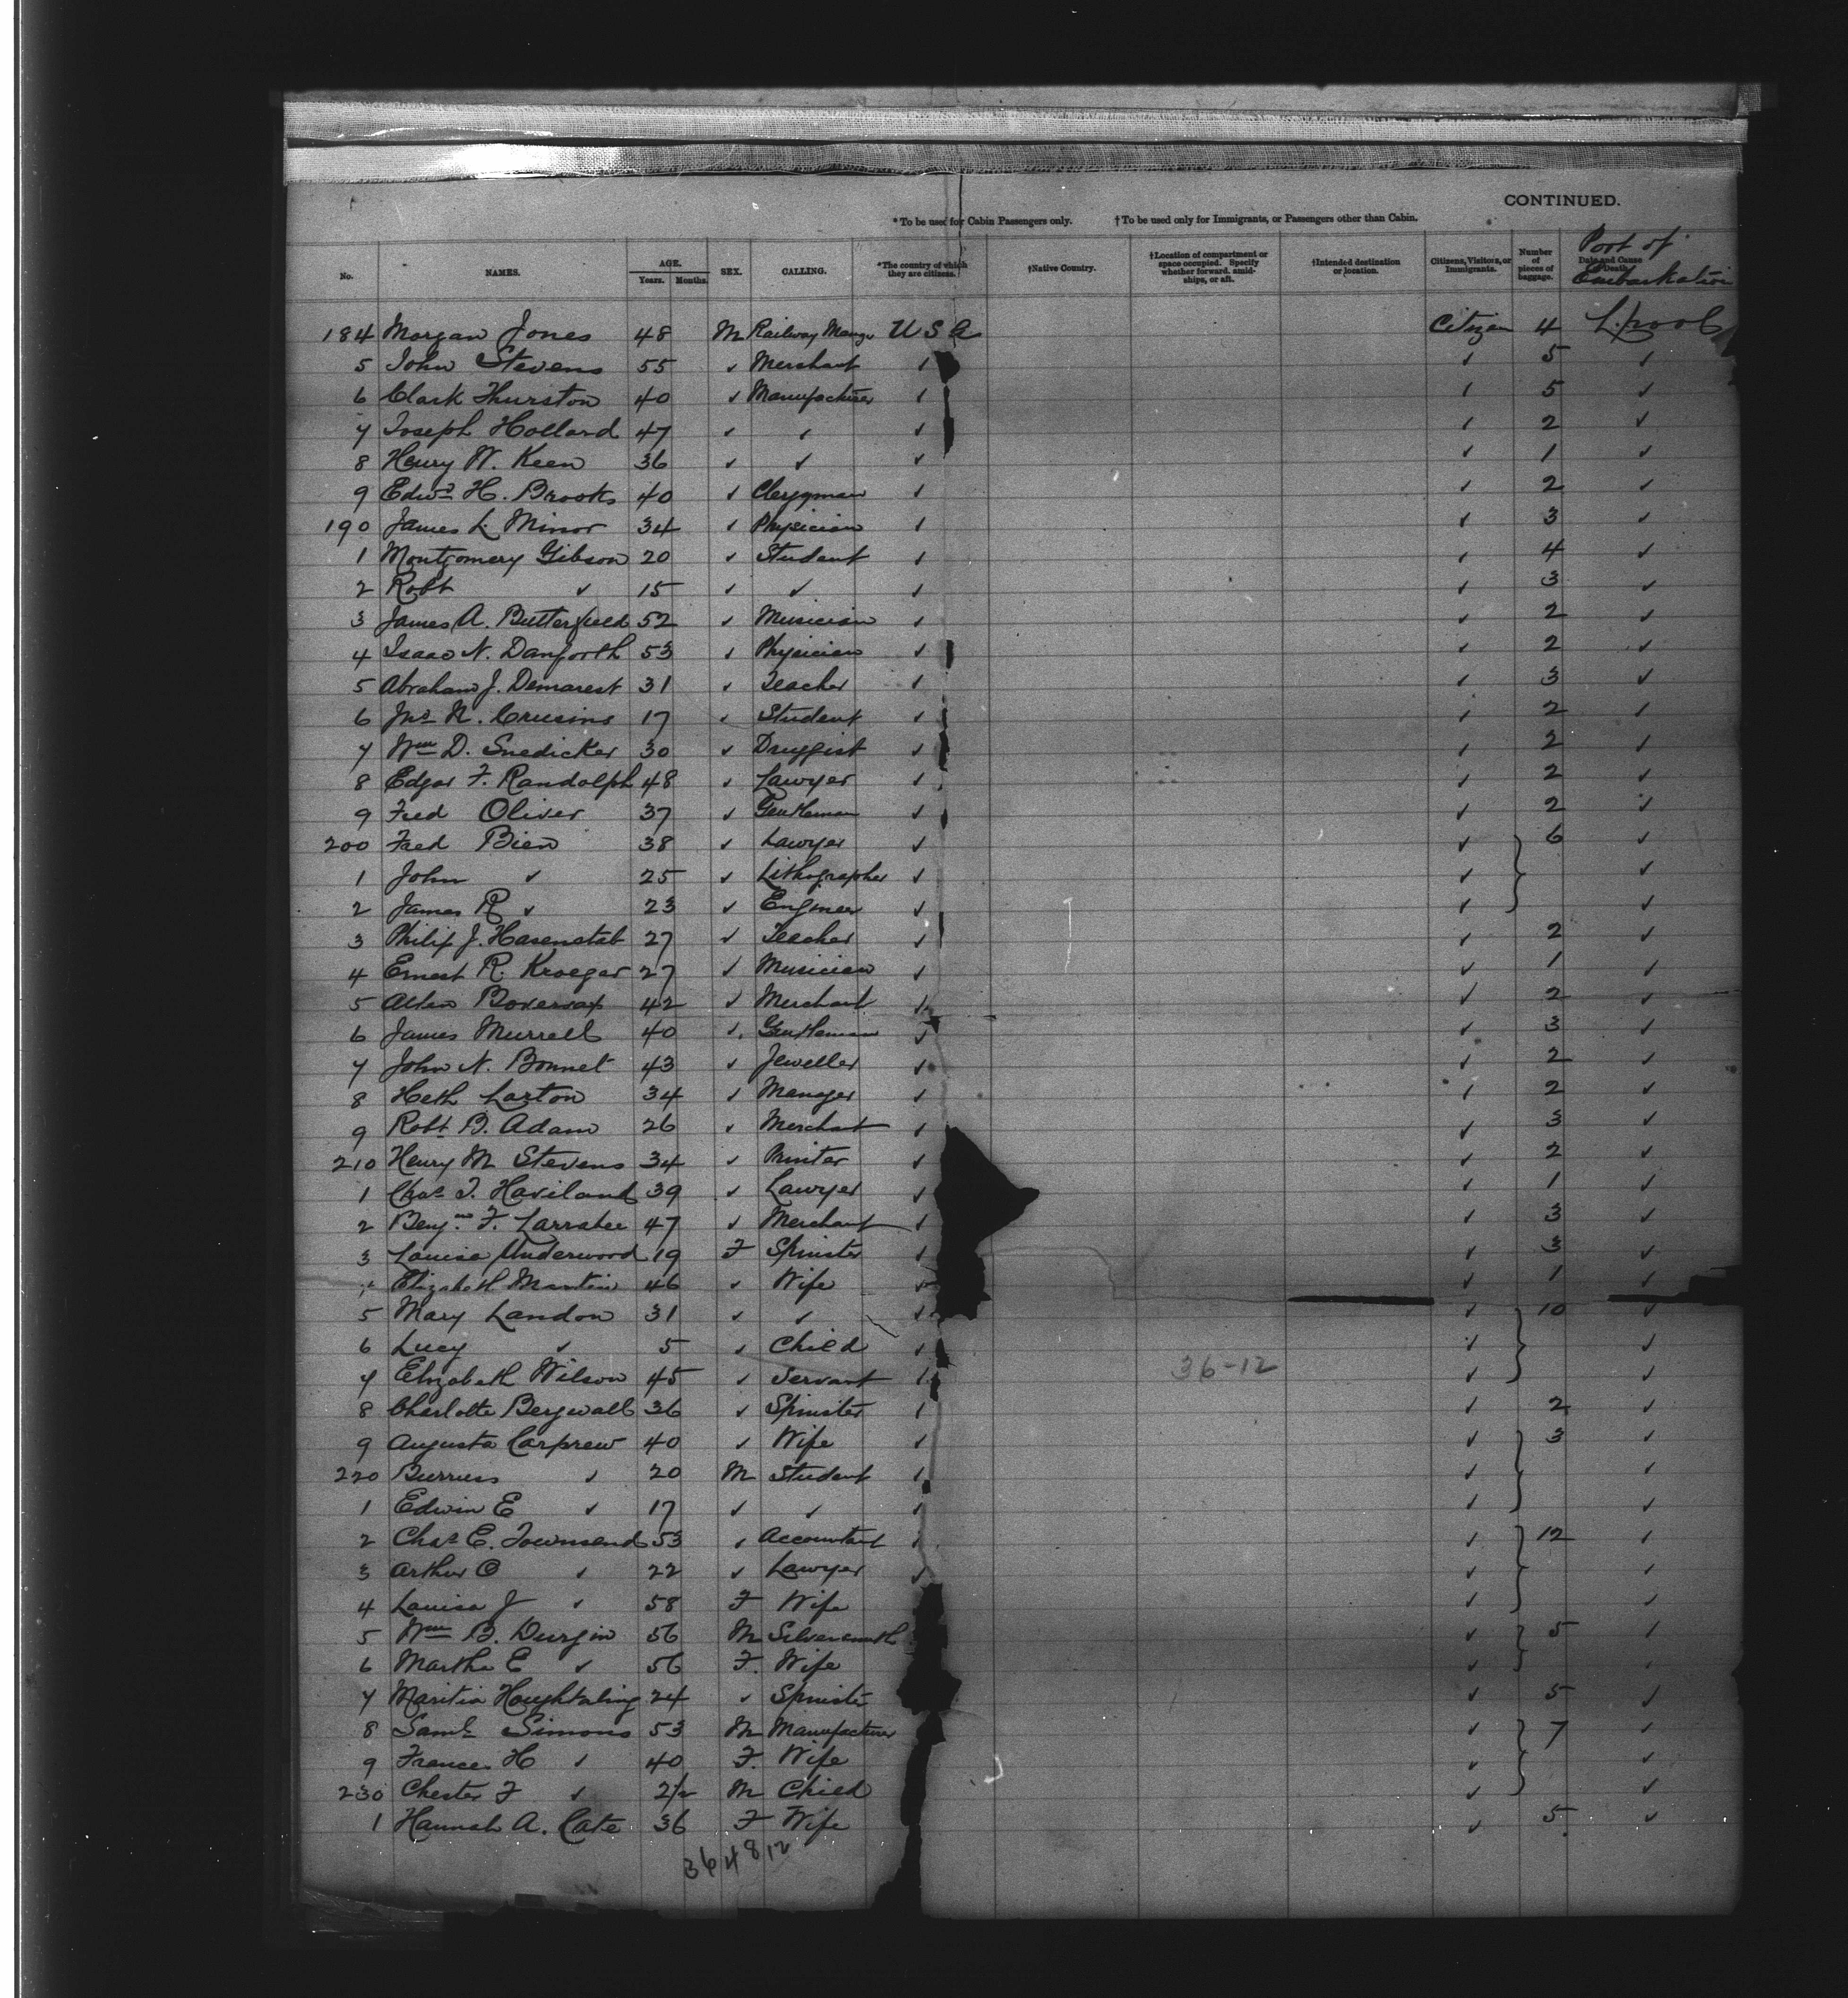 CONTINUED.
* To be used for Cabin Passengers only. † To be used only for Immigrants, or Passengers other than Cabin.
No. NAMES. AGE. Years. Months. SEX. CALLING. *The country of which they are citizens. †Native Country. †Location of compartment or space occupied. Specify whether forward, amidships, or aft. †Intended destination or location. Citizens, Visitors, or Immigrants. Number of pieces of baggage. Date and Cause of Death. Port of Embarkation
184 Morgan Jones 48 M Railway Mangr U S A Citizen 4 L.pool
5 John Stevens 55 ✓ Merchant ✓ ✓ 5 ✓
6 Clark Thurston 40 ✓ Manufacturer ✓ ✓ 5 ✓
7 Joseph Holland 47 ✓ ✓ ✓ ✓ 2 ✓
8 Henry W. Keen 36 ✓ ✓ ✓ ✓ 1 ✓
9 Edwd H. Brooks 40 ✓ Clergyman ✓ ✓ 2 ✓
190 James L. Minor 34 ✓ Physician ✓ ✓ 3 ✓
1 Montgomery Gibson 20 ✓ Student ✓ ✓ 4 ✓
2 Robt ✓ 15 ✓ ✓ ✓ ✓ 3 ✓
3 James A. Butterfield 52 ✓ Musician ✓ ✓ 2 ✓
4 Isaac N. Danforth 53 ✓ Physician ✓ ✓ 2 ✓
5 Abraham J. Demarest 31 ✓ Teacher ✓ ✓ 3 ✓
6 Jno N. Crusins 17 ✓ Student ✓ ✓ 2 ✓
7 Wm D. Snedicker 30 ✓ Druggist ✓ ✓ 2 ✓
8 Edgar F. Randolph 48 ✓ Lawyer ✓ ✓ 2 ✓
9 Fred Oliver 37 ✓ Gentleman ✓ ✓ 2 ✓
200 Fred Bien 38 ✓ Lawyer ✓ ✓ 6 ✓
1 John ✓ 25 ✓ Lithographer ✓ ✓ ✓
2 James R ✓ 23 ✓ Engineer ✓ ✓ ✓
3 Philip J. Hasenstab 27 ✓ Teacher ✓ ✓ 2 ✓
4 Ernest R. Kroeger 27 ✓ Musician ✓ ✓ 1 ✓
5 Allen 42 ✓ Merchant ✓ ✓ 2 ✓
6 James Murrell 40 ✓ Gentleman ✓ ✓ 3 ✓
7 John N. Bonnet 43 ✓ Jeweller ✓ ✓ 2 ✓
8 Heth Lorton 34 ✓ Manager ✓ ✓ 2 ✓
9 Robt B. Adam 26 ✓ Merchant ✓ ✓ 3 ✓
210 Henry M Stevens 34 ✓ Printer ✓ ✓ 2 ✓
1 Chas T. Haviland 39 ✓ Lawyer ✓ ✓ 1 ✓
2 Benjn F. Larrabee 47 ✓ Merchant ✓ ✓ 3 ✓
3 Louisa Underwood 19 F Spinster ✓ ✓ 3 ✓
4 Elizabeth Martin 46 ✓ Wife ✓ ✓ 1 ✓
5 Mary Landon 31 ✓ ✓ ✓ ✓ 10 ✓
6 Lucy ✓ 5 ✓ Child ✓ ✓ ✓
7 Elizabeth Wilson 45 ✓ Servant ✓ 36-12 ✓ ✓
8 Charlotte Bergwall 36 ✓ Spinster ✓ ✓ 2 ✓
9 Augusta Carprew 40 ✓ Wife ✓ ✓ 3 ✓
220 Burruss ✓ 20 M Student ✓ ✓ ✓
1 Edwin E ✓ 17 ✓ ✓ ✓ ✓ ✓
2 Chas E. Townsend 53 ✓ Accountant ✓ ✓ 12 ✓
3 Arthur O ✓ 22 ✓ Lawyer ✓ ✓ ✓
4 Louisa J ✓ 58 F Wife ✓ ✓
5 Wm B. Durgin 56 M Silversmith ✓ 5 ✓
6 Martha E ✓ 56 F. Wife ✓ ✓
7 Maritia Houghtaling 24 ✓ Spinster ✓ 5 ✓
8 Saml Simons 53 M Manufacturer ✓ 7 ✓
9 Frances H ✓ 40 F. Wife ✓ ✓
230 Chester F ✓ 2½ M Child ✓ ✓
1 Hannah A. Cate 36 F Wife ✓ 5 ✓
36 4 8 12